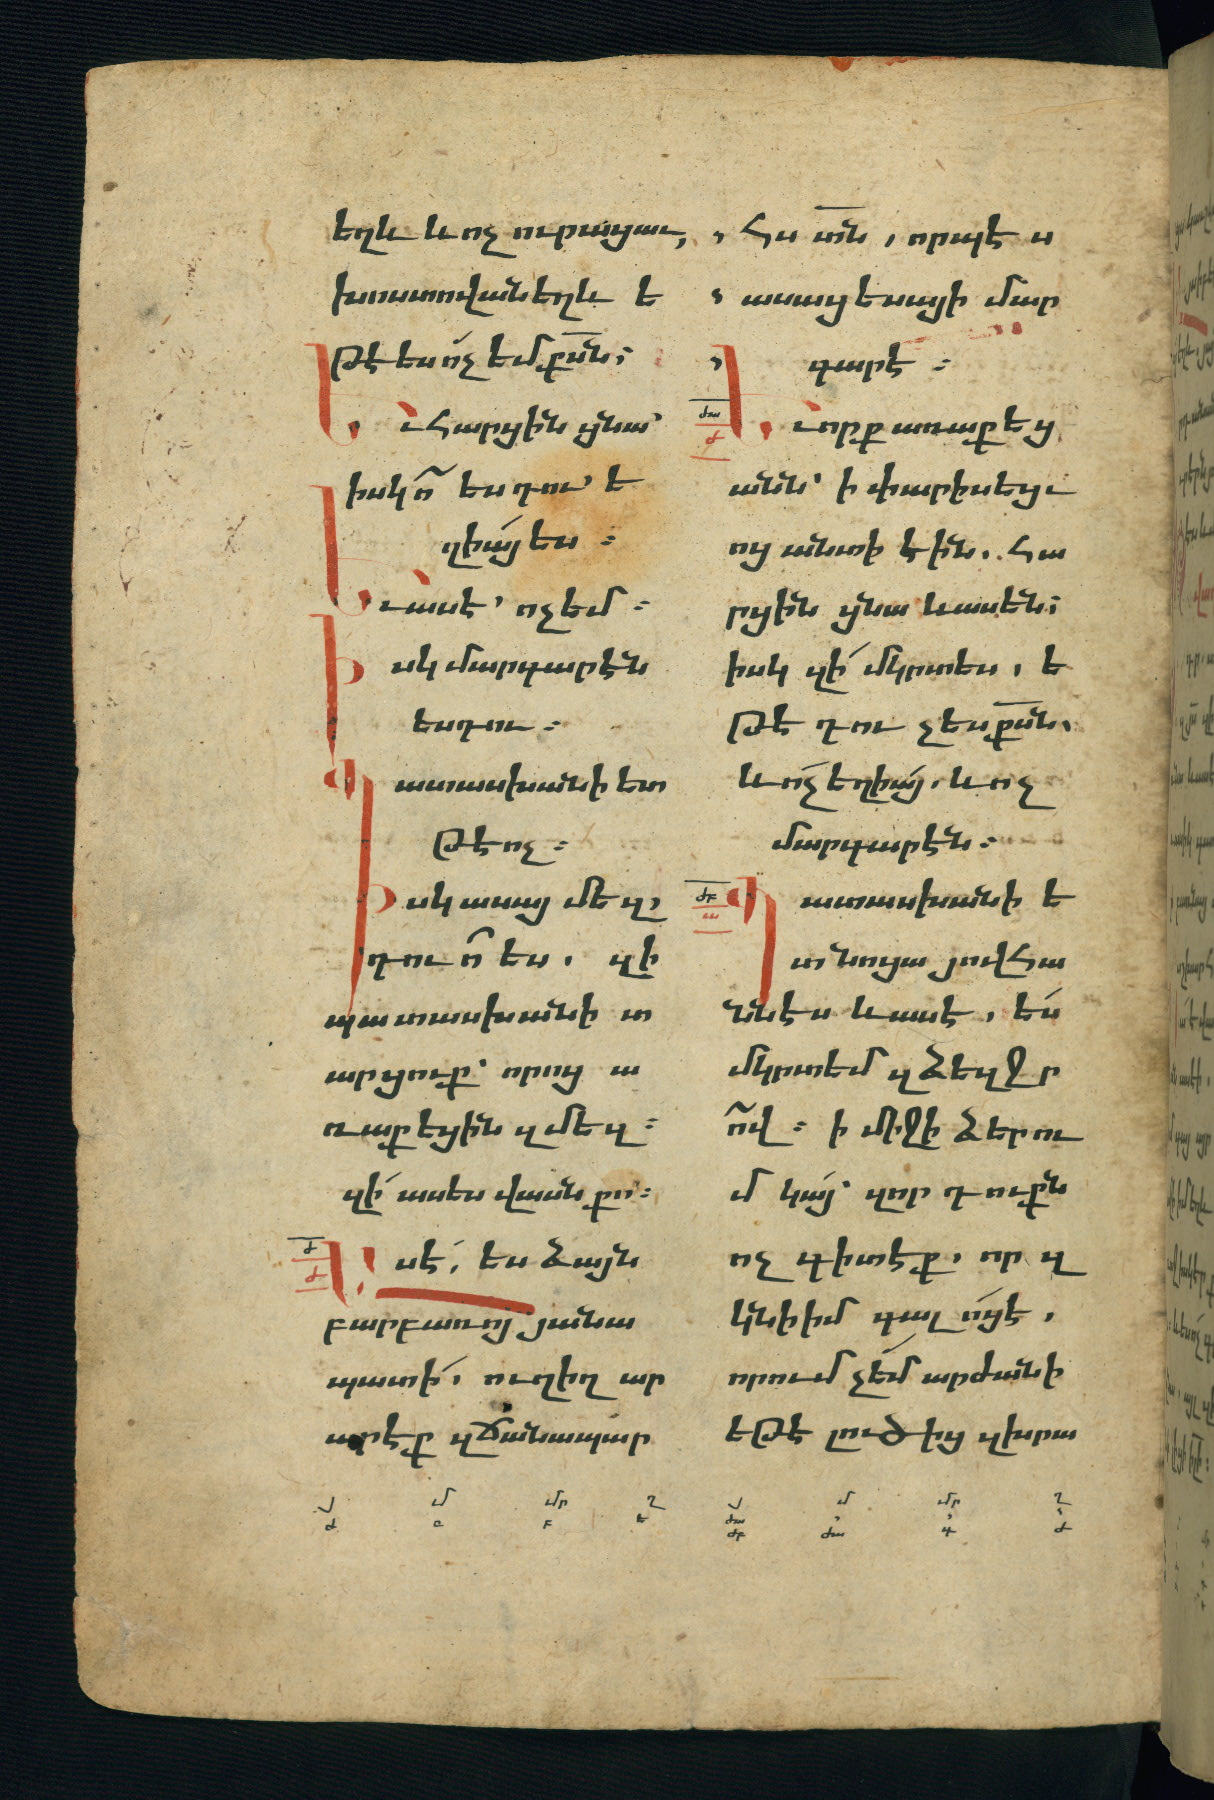 եղև և ոչ ուրացաւ,
խոստովան եղև ե
թէ ես ոչ եմ ք̅ս̅ն։
Եւ հարցին ցնա՝
իսկ ո՞ ես դու՝ ե
ղիայ ես։
Եւ ասէ՝ ոչ եմ։
Իսկ մարգարէն
ես դու։
Պատասխանի ետ
թէ ոչ։
Իսկ ասաց մեզ,
դու ո՞ ես. զի
պատասխանի տ
արցուք՝ որոց ա
ռաքեցին զմեզ։
զի՛ ասես վասն քո։
ժ
ժ
Ասէ, ես ձայն
բարբառոյ յանա
պատի՛, ուղիղ ար
արէք զճանապար
հս տ̅ն, որպէս
ասաց եսայի մար
գարէ։
ժա
ժ
Եւ որք առաքեց
անն՝ ի փարիսեցւ
ոց անտի էին. հա
րցին ցնա և ասեն։
իսկ զի՛ մկրտես, ե
թէ դու չես ք̅ս̅ն,
և ոչ եղիայ. և ոչ
մարգարէն։
ժբ
ա
Պատասխանի ե
տ նոցա յովհա
ննէս և ասէ, ես
մկրտեմ զձեզ ջր
ով։ ի միջի ձերու
մ կայ՝ զոր դուքն
ոչ գիտէք, որ զ
կնի իմ գալոցէ,
որում չեմ արժանի
եթէ լուծից զխրա